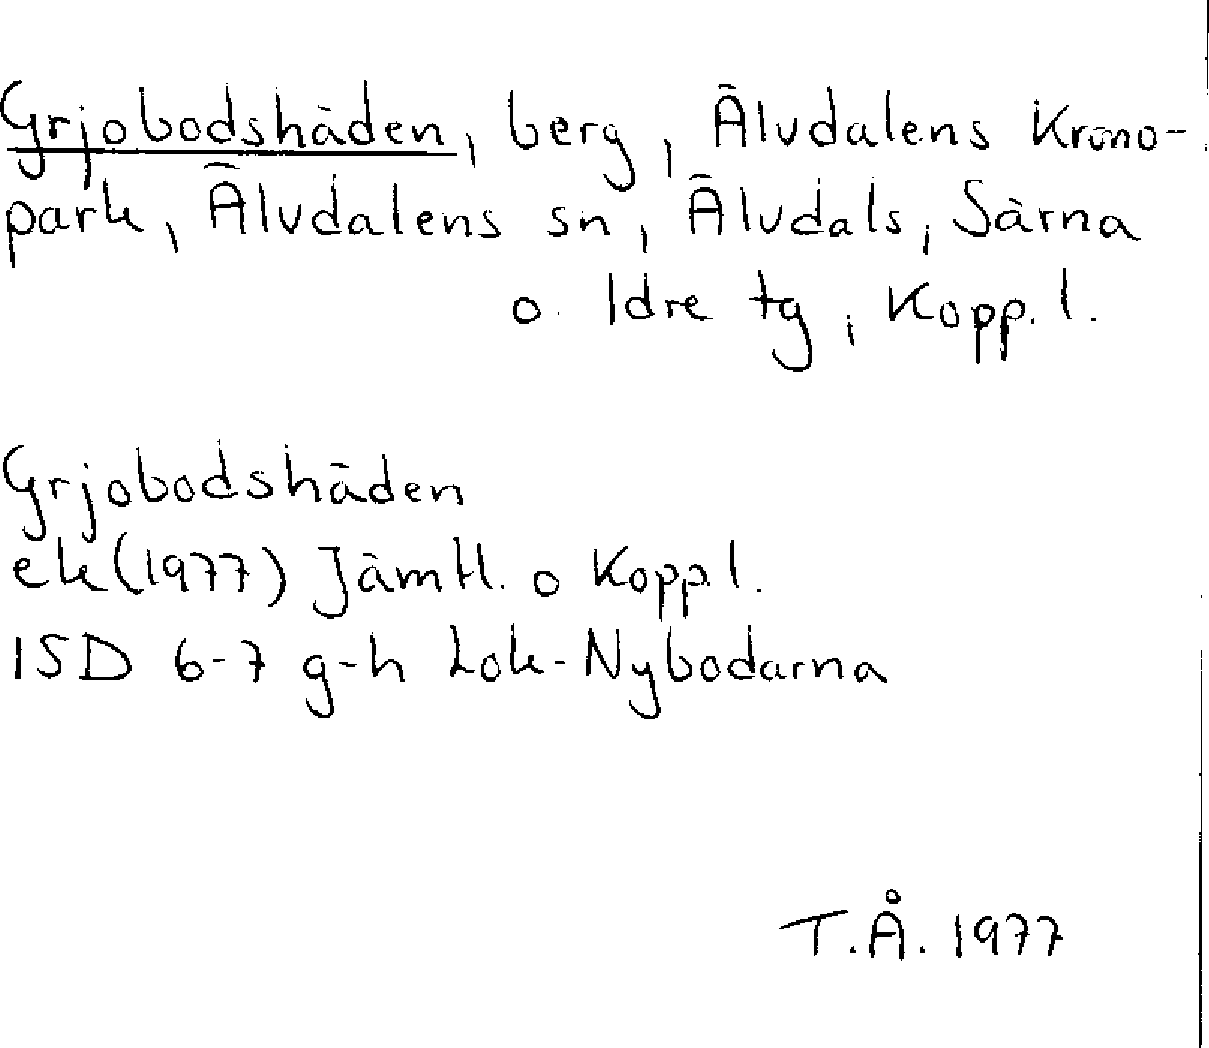 Grjobodshäden, berg, Älvdalens Krono-
park, Älvdalens sn, Älvdals, Särna
o. Idre tg, Kopp. l.
Grjobodshäden
ek (1977) Jämtl. o Kopp l.
15D 6-7 g-h Lok-Nybodarna
T.Å. 1977